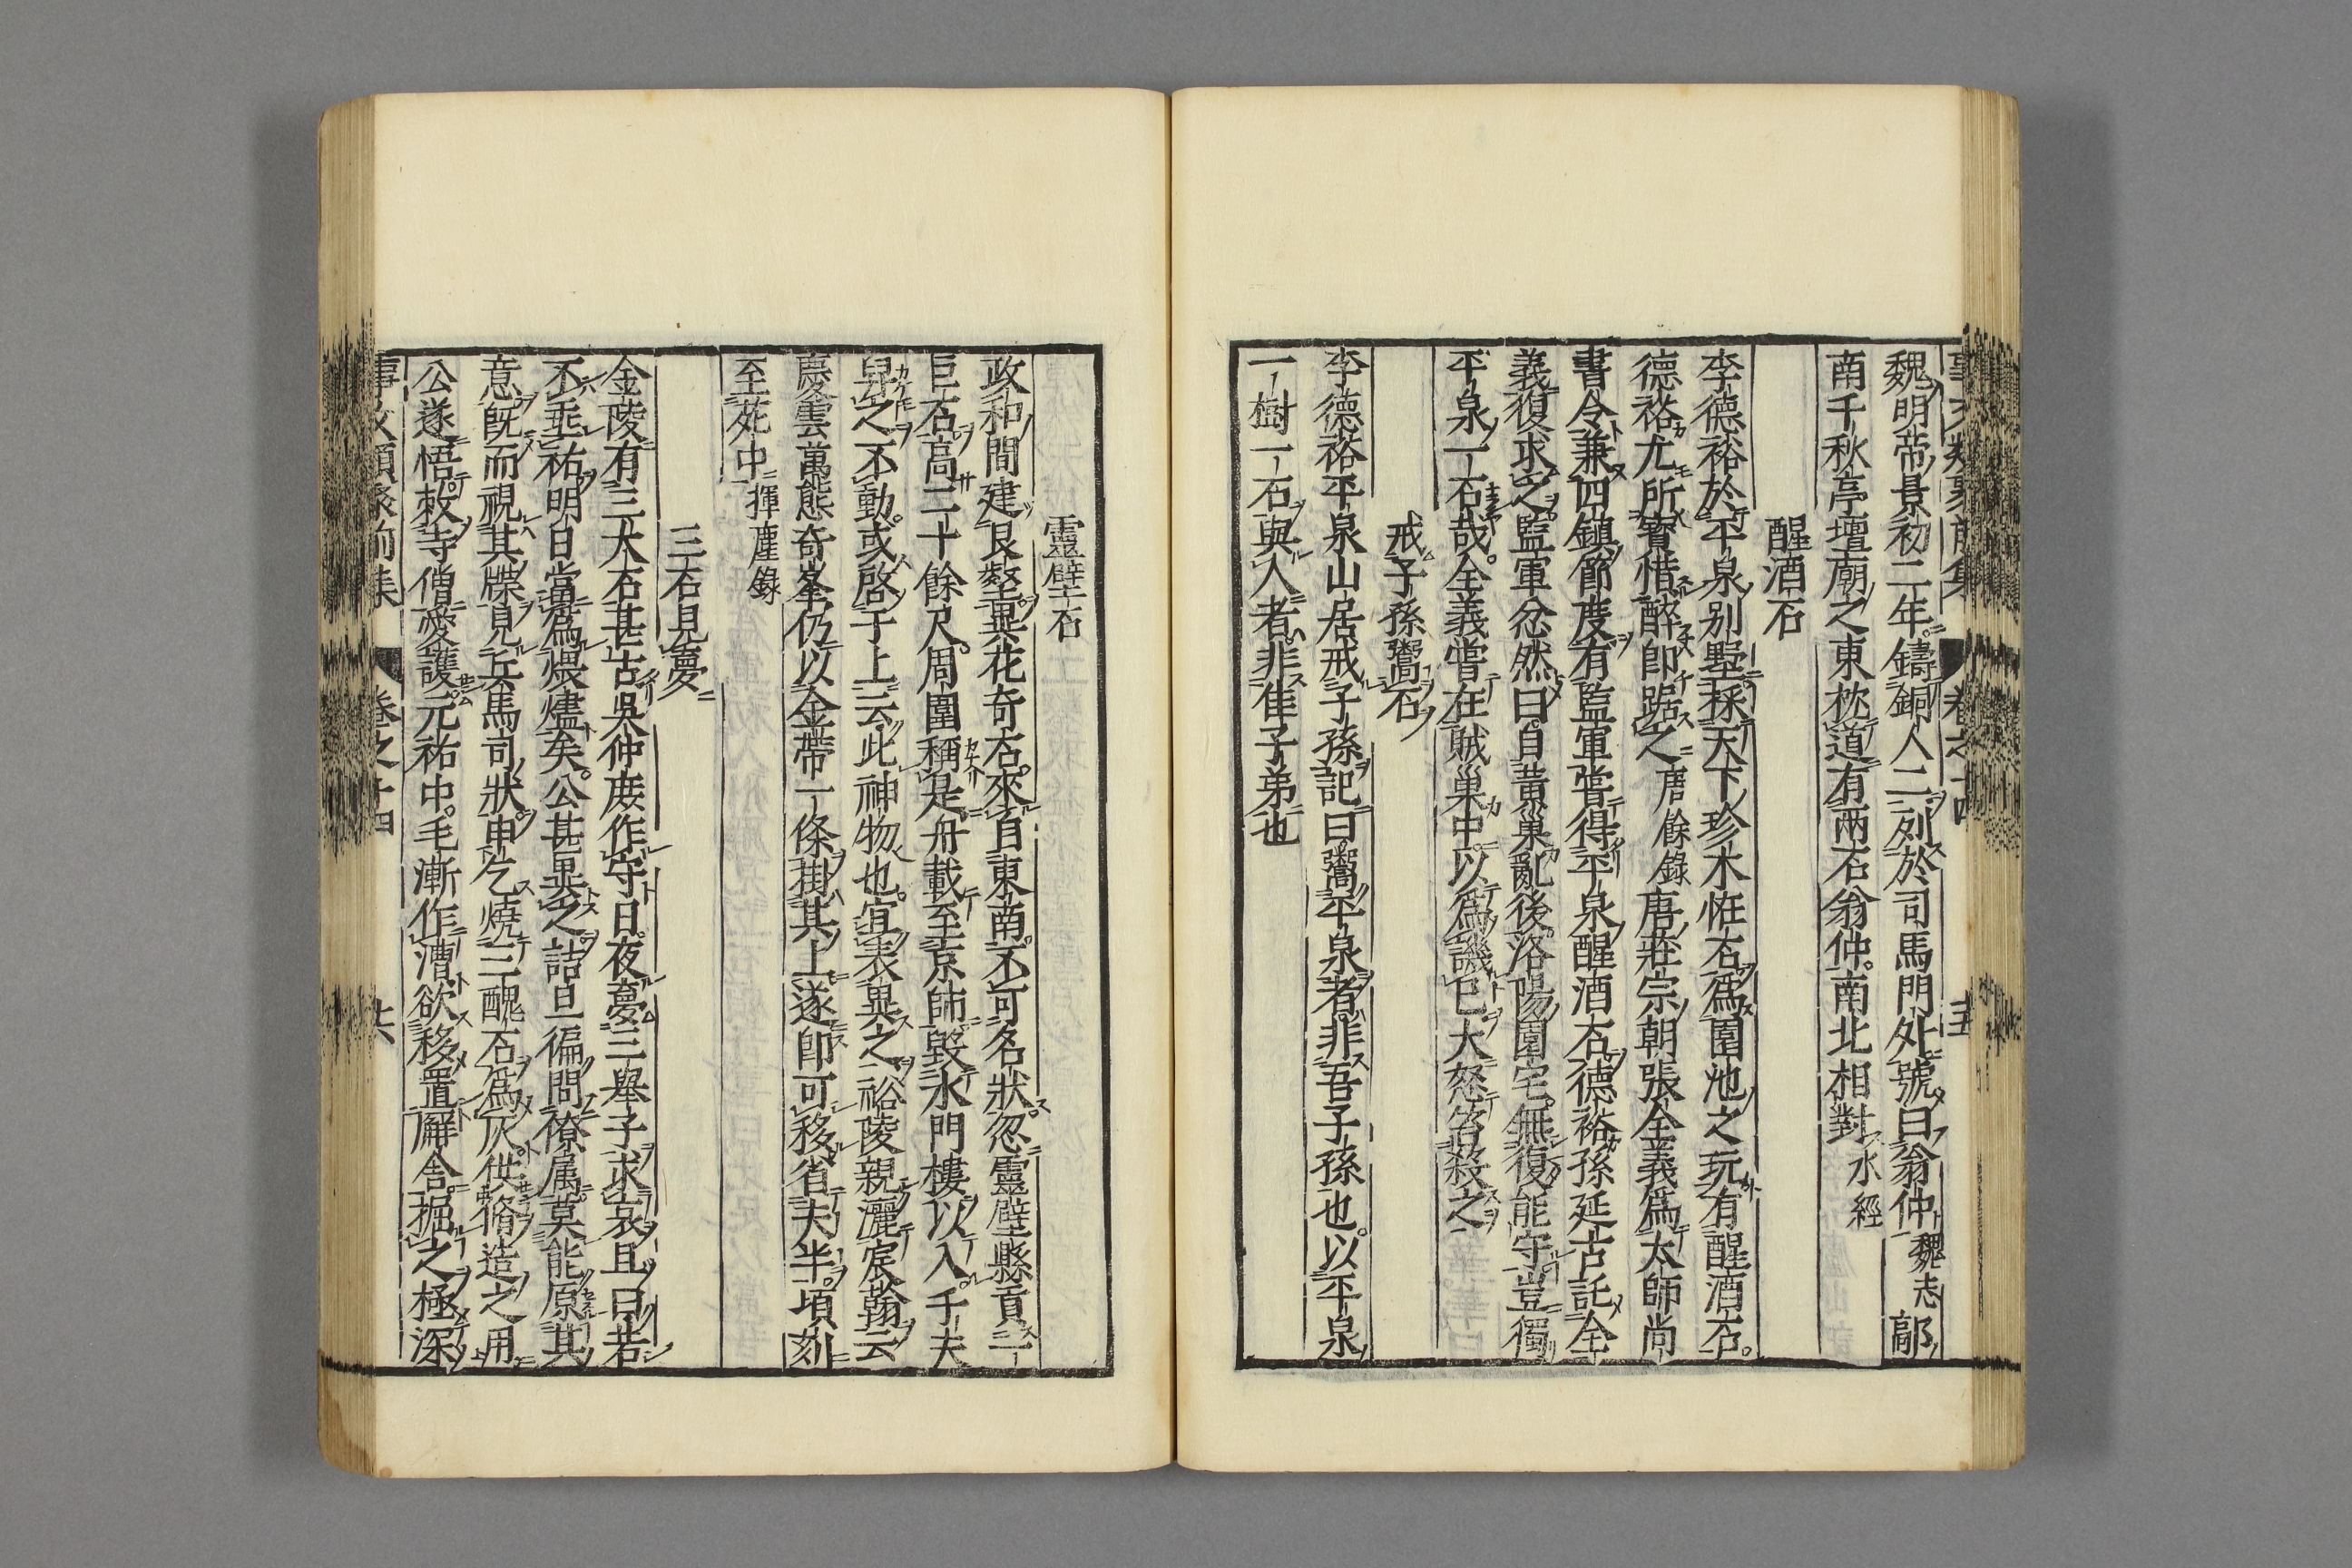 魏明帝景初二年鑄銅人二列於司馬門外號曰翁仲魏志鄗
南千秋亭壇廟之東枕道有兩石翁仲南北相對水經
醒酒石
李德裕於平泉別墅採天下珍木怪石爲園池之玩有醒酒石
德裕尤所寳惜醉卽踞之唐餘錄唐莊宗朝張全義爲太師尚
書令兼四鎮節度有監軍嘗得平泉醒酒石德裕孫延古託全
義復求之監軍忿然曰自黃巢亂後洛陽園宅無復能守豈獨
平泉一石哉全義嘗在賊巢中以爲譏巳大怒笞殺之
戒子孫鬻石
李德裕平泉山居戒子孫記曰鬻平泉者非吾子孫也以平泉
一樹一石與人者非佳子弟也
靈壁石
政和間建艮嶽異花奇石來自東南不可名狀忽靈壁縣貢一
巨石高二十餘尺周圍稱是舟載至京師毀水門樓以入千夫
舁之不動或啓于上云此神物也宜表異之裕陵親灑宸翰云
慶雲萬態奇峯仍以金帶一條掛其上遂卽可移省夫半頃刻
至苑中揮麈錄
三石見夢
金陵有三大石甚古吳仲庶作守日夜夢三舉子求哀且曰若
不垂祐明日當爲煨燼矣公甚異之詰旦徧問僚属莫能原其
意旣而視其牒見兵馬司狀申乞燒三醜石爲灰供脩造之用
公遂悟敕寺僧愛護元祐中毛漸作漕欲移置廨舎掘之極深
卷之十四